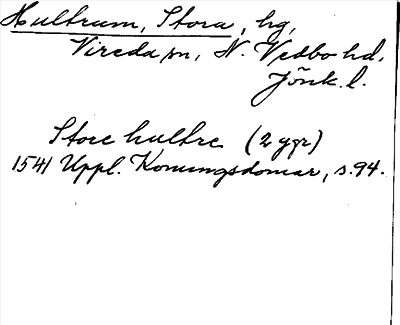 Hultrum, Stora, hg,
Vireda sn, N. Vedbo hd.
Jönk. l.
Store hultre (2 ggr)
1541 Uppl. Konungsdomar, s. 94.